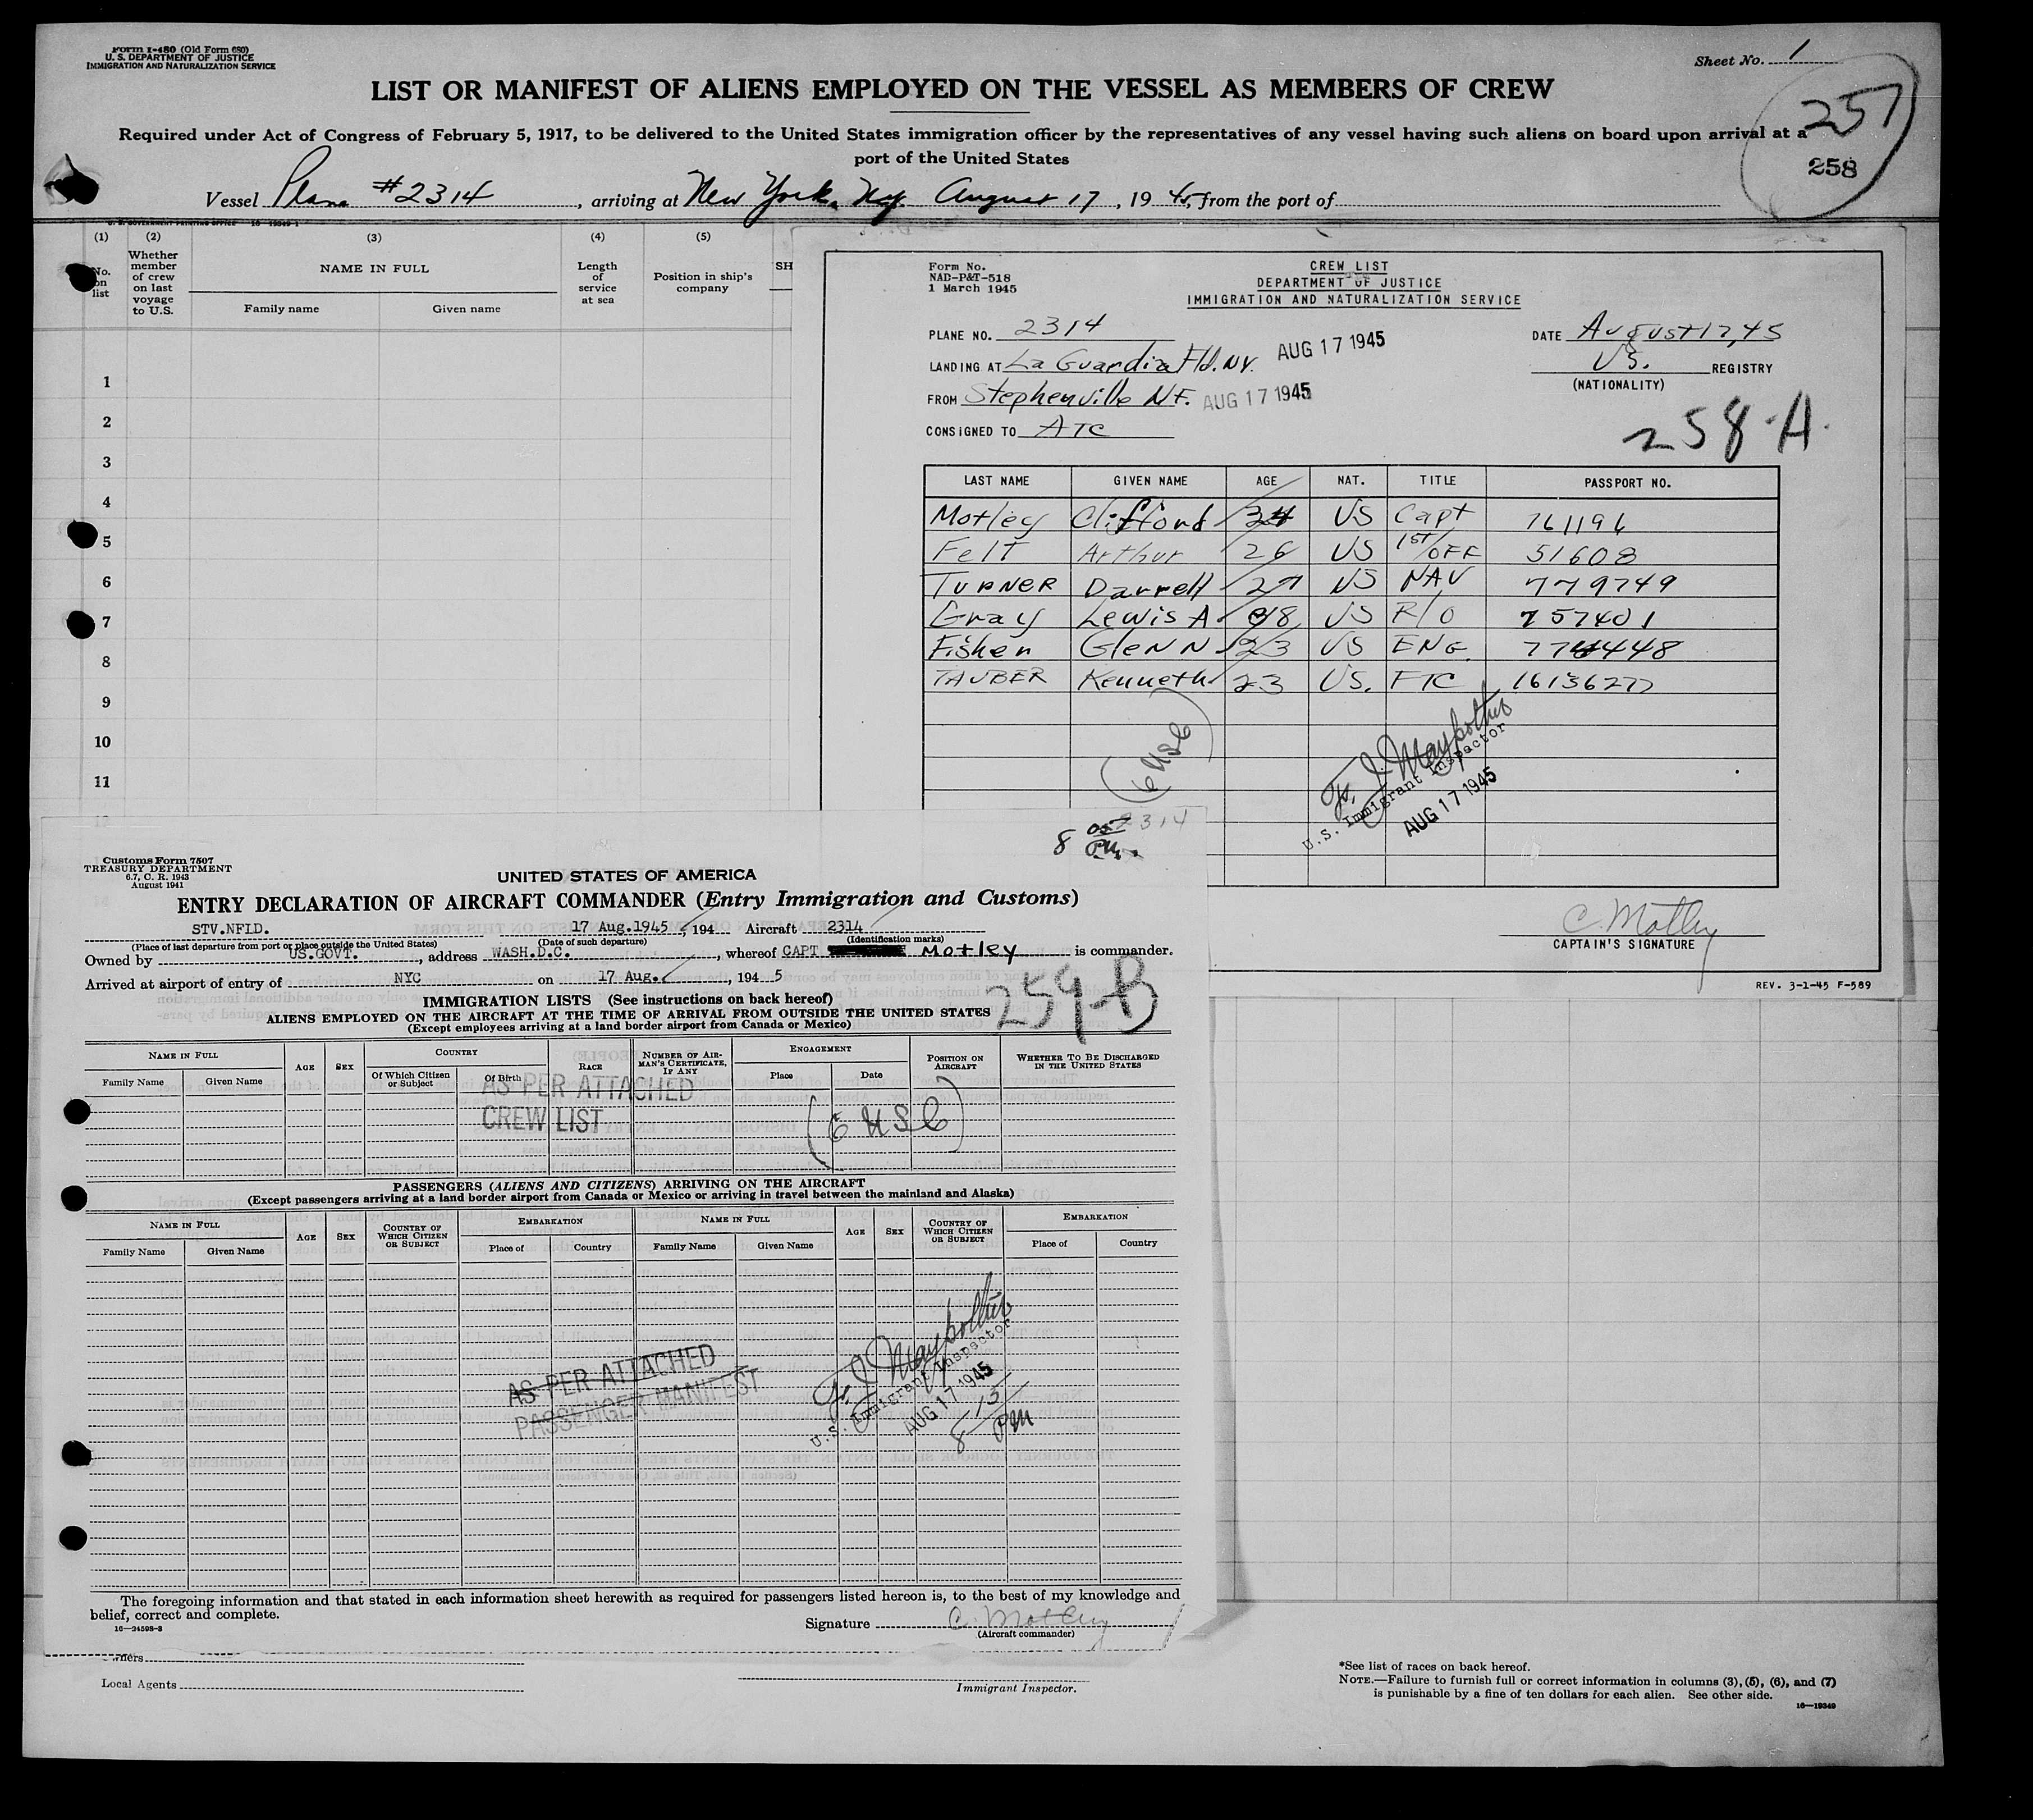 Form I-480 (Old Form 680)
U. S. DEPARTMENT OF JUSTICE
IMMIGRATION AND NATURALIZATION SERVICE
Sheet No. 1
LIST OR MANIFEST OF ALIENS EMPLOYED ON THE VESSEL AS MEMBERS OF CREW
257
258
Required under Act of Congress of February 5, 1917, to be delivered to the United States immigration officer by the representatives of any vessel having such aliens on board upon arrival at a
port of the United States
Vessel Plane #2314, arriving at New York, Ny. August 17, 1945, from the port of
(1) (2) (3) (4) (5)
No. on list
Whether member of crew on last voyage to U.S.
NAME IN FULL
Family name Given name
Length of service at sea
Position in ship's company
SH
1
2
3
4
5
6
7
8
9
10
11
Form No.
NAD-P&T-518
1 March 1945
CREW LIST
DEPARTMENT OF JUSTICE
IMMIGRATION AND NATURALIZATION SERVICE
PLANE NO. 2314
DATE August 17, 45
LANDING AT La Guardia Fld. NY. AUG 17 1945
US. REGISTRY
(NATIONALITY)
FROM Stephenville NF. AUG 17 1945
CONSIGNED TO ATC
258-A.
LAST NAME GIVEN NAME AGE NAT. TITLE PASSPORT NO.
Motley Clifford 34 US Capt 761196
Felt Arthur 26 US 1st/OFF 51608
TURNER Darrell 27 US NAV 779749
Gray Lewis A US R/O 757401
Fisher GleNN 23 US ENG.
TAUBER Kenneth 23 US. FTC 16136277
(6 USC)
U.S. Immigrant Inspector
AUG 17 1945
C. Motley
CAPTAIN'S SIGNATURE
REV. 3-1-45 F-589
2314
8 05 P.M.
Customs Form 7507
TREASURY DEPARTMENT
6.7, C. R. 1943
August 1941
UNITED STATES OF AMERICA
ENTRY DECLARATION OF AIRCRAFT COMMANDER (Entry Immigration and Customs)
STV.NFLD. 17 Aug.1945, 194 Aircraft 2314
(Place of last departure from port or place outside the United States) (Date of such departure) (Identification marks)
Owned by US.GOVT., address WASH.D.C., whereof CAPT Motley is commander.
Arrived at airport of entry of NYC on 17 Aug., 1945
259-B
IMMIGRATION LISTS (See instructions on back hereof)
ALIENS EMPLOYED ON THE AIRCRAFT AT THE TIME OF ARRIVAL FROM OUTSIDE THE UNITED STATES
(Except employees arriving at a land border airport from Canada or Mexico)
NAME IN FULL AGE SEX COUNTRY RACE NUMBER OF AIRMAN'S CERTIFICATE, IF ANY ENGAGEMENT POSITION ON AIRCRAFT WHETHER TO BE DISCHARGED IN THE UNITED STATES
Family Name Given Name Of Which Citizen or Subject Of Birth Place Date
AS PER ATTACHED
CREW LIST
(6 USC)
PASSENGERS (ALIENS AND CITIZENS) ARRIVING ON THE AIRCRAFT
(Except passengers arriving at a land border airport from Canada or Mexico or arriving in travel between the mainland and Alaska)
NAME IN FULL AGE SEX COUNTRY OF WHICH CITIZEN OR SUBJECT EMBARKATION NAME IN FULL AGE SEX COUNTRY OF WHICH CITIZEN OR SUBJECT EMBARKATION
Family Name Given Name Place of Country Family Name Given Name Place of Country
AS PER ATTACHED
PASSENGER MANIFEST
U.S. Immigrant Inspector
AUG 17 1945
8 15 PM
The foregoing information and that stated in each information sheet herewith as required for passengers listed hereon is, to the best of my knowledge and
belief, correct and complete.
16—24598-3
Signature C. Motley
(Aircraft commander)
Local Agents
Immigrant Inspector.
*See list of races on back hereof.
NOTE.—Failure to furnish full or correct information in columns (3), (5), (6), and (7)
is punishable by a fine of ten dollars for each alien. See other side.
16—19349